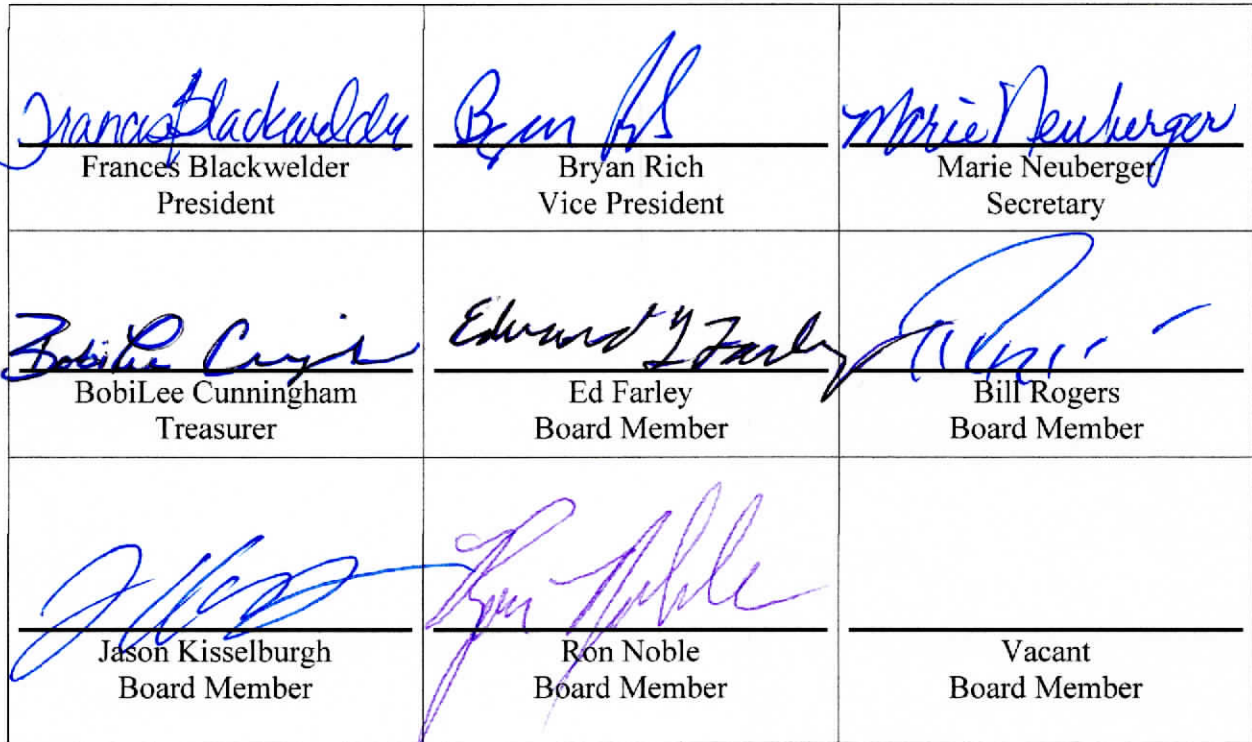 Frances Blackwelder
Bryan
Marie Neuberger
Frances Blackwelder
President
Bryan Rich
Vice President
Marie Neuberger
Secretary
BobiLee
Edward Farley
BobiLee Cunningham
Treasurer
Ed Farley
Board Member
Bill Rogers
Board Member
Ron Noble
Jason Kisselburgh
Board Member
Ron Noble
Board Member
Vacant
Board Member